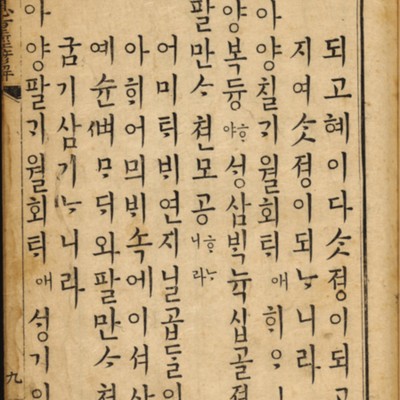 되고혜이다솟졍이되고
지여솟졍이되ᄂᆞ니라
아양칠긔월회ᄐᆡ애
양복듕ᄒᆞ야셩삼ᄇᆡᆨ뉵십골졀
팔만ᄉᆞ쳔모공ᄒᆞᄂᆞ니라
어미ᄐᆡᄇᆡ연지닐곱ᄃᆞᆯ의
아ᄒᆡ어믜ᄇᆡ속에이셔사
예슌ᄲᅧ모ᄃᆡ와팔만ᄉᆞ쳔
굼기삼기ᄂᆞ니라
아양팔긔월회ᄐᆡ애셩기
九